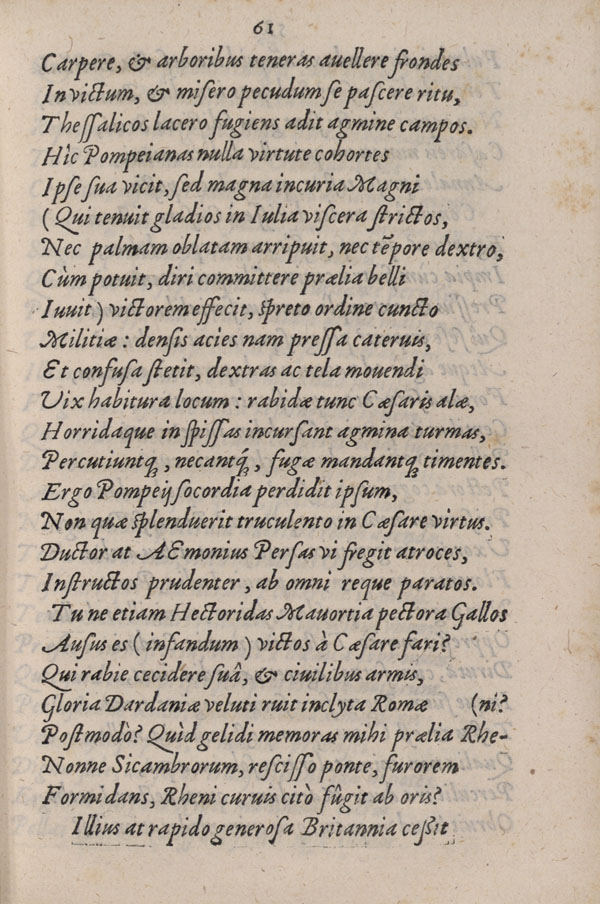 61
Carpere, & arboribus teneras auellere frondes
Invictum, & misero pecudum se pascere ritu,
Thessalicos lacero fugiens adit agmine campos.
Hîc Pompeianas nulla virtute cohortes
Ipse sua vicit, sed magna incuria Magni
(Qui tenuit gladios in Iulia viscera strictos,
Nec palmam oblatam arripuit, nec tēpore dextro,
Cùm potuit, diri committere prælia belli
Iuuit) victorem effecit, spreto ordine cuncto
Militiæ: densis acies nam pressa cateruis,
Et confusa stetit, dextras ac tela mouendi
Vix habitura locum: rabidæ tunc Cæsaris alæ,
Horridaque in spissas incursant agmina turmas,
Percutiuntq́ꝫ, necantq́ꝫ, fugæ mandantq́ꝫ timentes.
Ergo Pompeij socordia perdidit ipsum,
Non quæ splenduerit truculento in Cæsare virtus.
Ductor at AEmonius Persas vi fregit atroces,
Instructos prudenter, ab omni reque paratos.
Tu ne etiam Hectoridas Mauortia pectora Gallos
Ausus es (infandum) victos à Cæsare fari?
Qui rabie cecidere suâ, & ciuilibus armis,
Gloria Dardaniæ veluti ruit inclyta Romæ (ni?
Postmodò? Quìd gelidi memoras mihi prælia Rhe-
Nonne Sicambrorum, rescisso ponte, furorem
Formidans, Rheni curuis citò fûgit ab oris?
Illius at rapido generosa Britannia ceßit